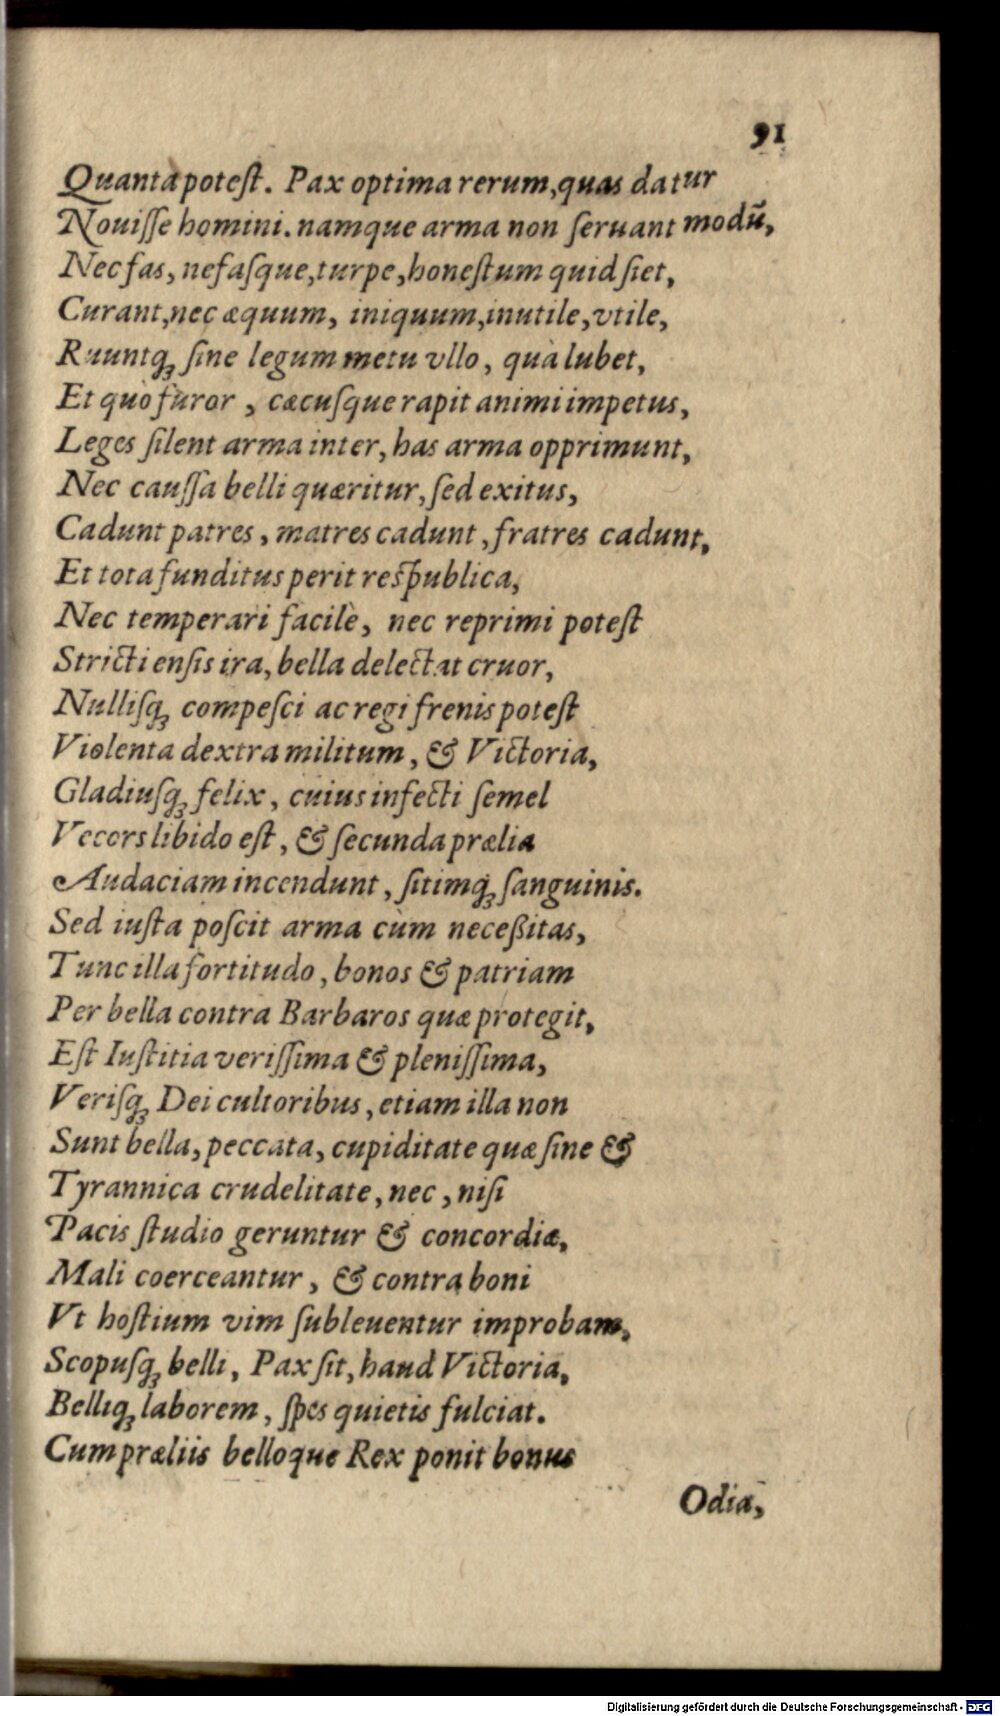 91
Quanta potest. Pax optima rerum, quas datur
Nouiſſe homini. namque arma non ſeruant modũ,
Nec fas, nefaſque, turpe, honeſtum quid ſiet,
Curant, nec æquum, iniquum, inutile, vtile,
Ruuntq́; ſine legum metu vllo, quà lubet,
Et quò furor, cæcuſque rapit animi impetus,
Leges ſilent arma inter, has arma opprimunt,
Nec cauſſa belli quæritur, ſed exitus,
Cadunt patres, matres cadunt, fratres cadunt,
Et tota funditus perit reſpublica,
Nec temperari facilè, nec reprimi poteſt
Stricti enſis ira, bella delectat cruor,
Nulliſq́; compeſci ac regi frenis poteſt
Violenta dextra militum, & Victoria,
Gladiuſq́; felix, cuius infecti ſemel
Vecors libido eſt, & ſecunda prælia
Audaciam incendunt, ſitimq́; ſanguinis.
Sed iuſta poſcit arma cùm neceßitas,
Tunc illa fortitudo, bonos & patriam
Per bella contra Barbaros quæ protegit,
Eſt Iuſtitia veriſſima & pleniſſima,
Veriſq́; Dei cultoribus, etiam illa non
Sunt bella, peccata, cupiditate quæ ſine &
Tyrannica crudelitate, nec, niſi
Pacis ſtudio geruntur & concordiæ,
Mali coerceantur, & contra boni
Vt hoſtium vim ſubleuentur improbam,
Scopuſq́; belli, Pax ſit, haud Victoria,
Belliq́; laborem, ſpes quietis fulciat.
Cum præliis belloque Rex ponit bonus
Odia,
Digitalisierung gefördert durch die Deutsche Forschungsgemeinschaft - DFG